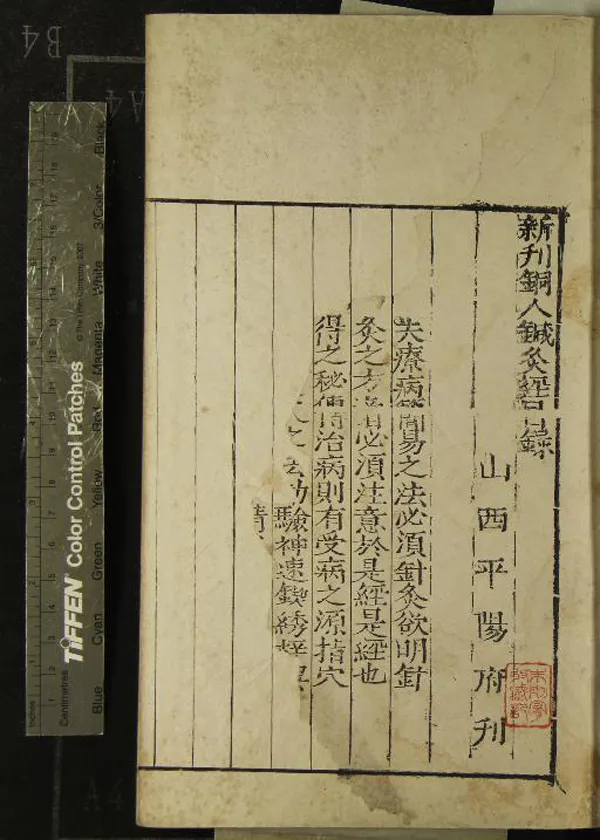 新刊銅人鍼灸經目錄
山西平陽府刊
夫療病簡易之法必須針灸欲明針
灸之方者必須注意於是經是經也
得之秘傳治病則有受病之源指穴
之 功驗神速鍥綉梓
B4
A4
TIFFEN Color Control Patches
© The Tiffen Company, 2007
Blue Cyan Green Yellow Red Magenta White 3/Color Black
Inches
Centimetres